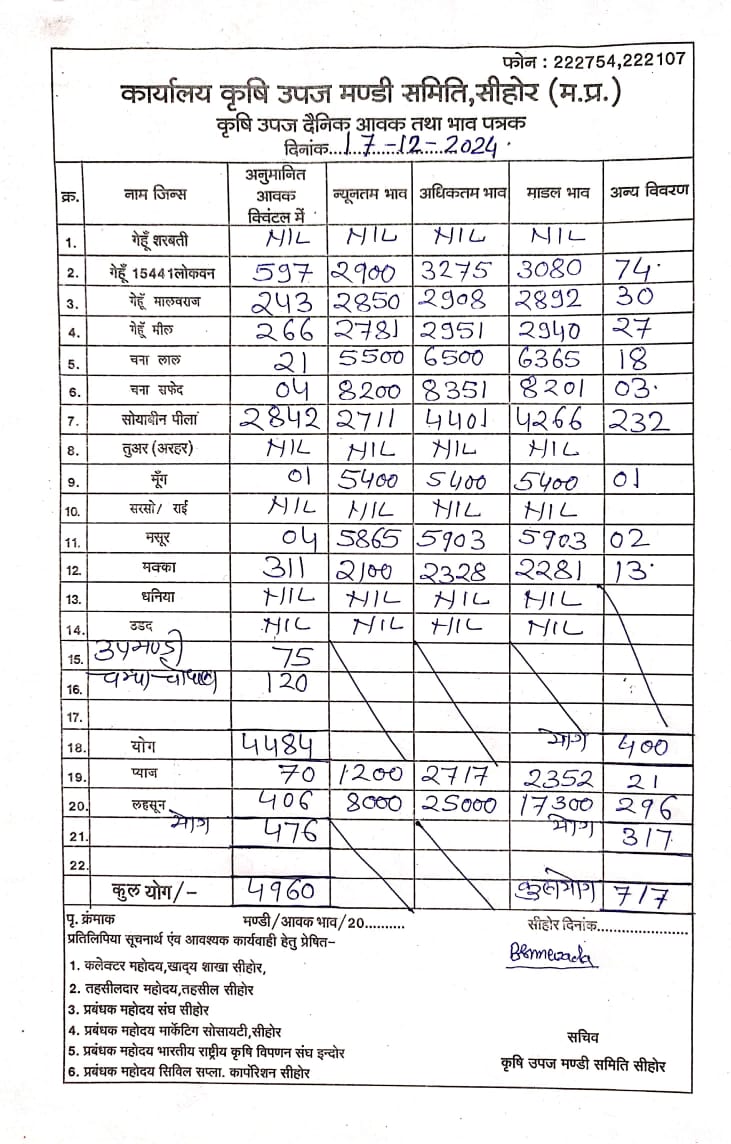 फोन : 222754,222107
कार्यालय कृषि उपज मण्डी समिति,सीहोर (म.प्र.)
कृषि उपज दैनिक आवक तथा भाव पत्रक
दिनांक...17-12-2024.
क्र. नाम जिन्स अनुमानित आवक क्विंटल में न्यूनतम भाव अधिकतम भाव माडल भाव अन्य विवरण
1. गेहूँ शरबती NIL NIL NIL NIL
2. गेहूँ 15441लोकवन 597 2900 3275 3080 74
3. गेहूँ मालवराज 243 2850 2908 2892 30
4. गेहूँ मील 266 2781 2951 2940 27
5. चना लाल 21 5500 6500 6365 18
6. चना सफेद 04 8200 8351 8201 03
7. सोयाबीन पीला 2842 2711 4401 4266 232
8. तुअर (अरहर) NIL NIL NIL NIL
9. मूँग 01 5400 5400 5400 01
10. सरसो/ राई NIL NIL NIL NIL
11. मसूर 04 5865 5903 5903 02
12. मक्का 311 2100 2328 2281 13
13. धनिया NIL NIL NIL NIL
14. उडद NIL NIL NIL NIL
15. उपमण्डी 75
16. 120
17.
18. योग 4484 योग 400
19. प्याज 70 1200 2717 2352 21
20. लहसून 406 8000 25000 17300 296
21. योग 476 योग 317
22.
कुल योग/- 4960 कुलयोग 717
पृ. क्रंमाक मण्डी/आवक भाव/20.......... सीहोर दिनांक......................
प्रतिलिपिया सूचनार्थ एंव आवश्यक कार्यवाही हेतु प्रेषित-
1. कलेक्टर महोदय,खाद्य शाखा सीहोर,
2. तहसीलदार महोदय,तहसील सीहोर
3. प्रबंधक महोदय संघ सीहोर
4. प्रबंधक महोदय मार्केटिग सोसायटी,सीहोर
5. प्रबंधक महोदय भारतीय राष्ट्रीय कृषि विपणन संघ इन्दोर
6. प्रबंधक महोदय सिविल सप्ला. कार्पोरेशन सीहोर
सचिव
कृषि उपज मण्डी समिति सीहोर